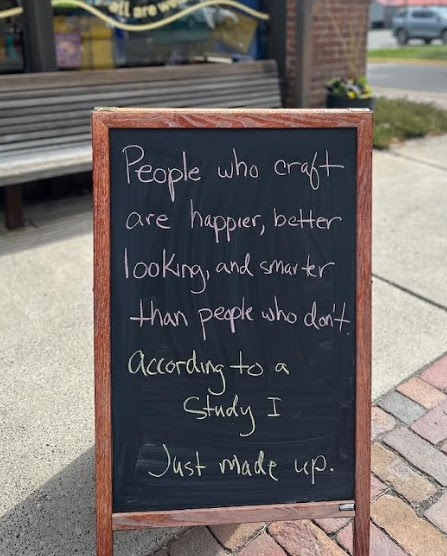 all are we
People who craft
are happier, better
looking, and smarter
than people who don't.
according to a
Study I
Just made up.